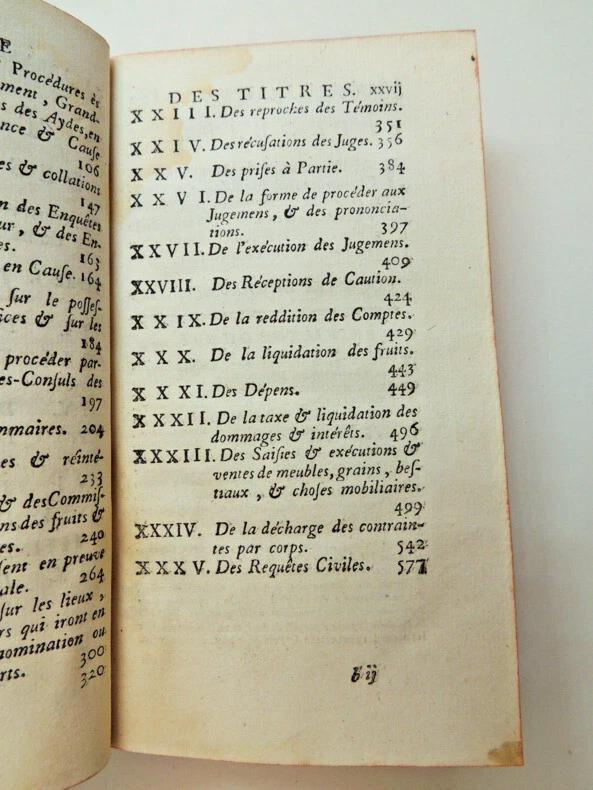 E
Procédures ès
ment, Grand-
s des Aydes, en
nce & Cause
106
es & collations
147
n des Enquêtes
ur, & des En-
es. 163
en Cause. 164
ſur le poſſeſ-
ices & ſur les
184
procéder par-
es-Conſuls des
197
mmaires. 204
es & réinté-
233
& des Commiſ-
ns des fruits &
es. 240
ſent en preuve
ale. 264
ſur les lieux,
rs qui iront en
nomination ou
300
rts. 320
DES TITRES. xxvij
XXIII. Des reproches des Témoins.
351
XXIV. Des récuſations des Juges. 356
XXV. Des priſes à Partie. 384
XXVI. De la forme de procéder aux
Jugemens, & des prononcia-
tions. 397
XXVII. De l'exécution des Jugemens.
409
XXVIII. Des Réceptions de Caution.
424
XXIX. De la reddition des Comptes.
429
XXX. De la liquidation des fruits.
443
XXXI. Des Dépens. 449
XXXII. De la taxe & liquidation des
dommages & intérêts. 496
XXXIII. Des Saiſies & exécutions &
ventes de meubles, grains, beſ-
tiaux, & choſes mobiliaires.
499
XXXIV. De la décharge des contrain-
tes par corps. 542
XXXV. Des Requêtes Civiles. 577
b ij